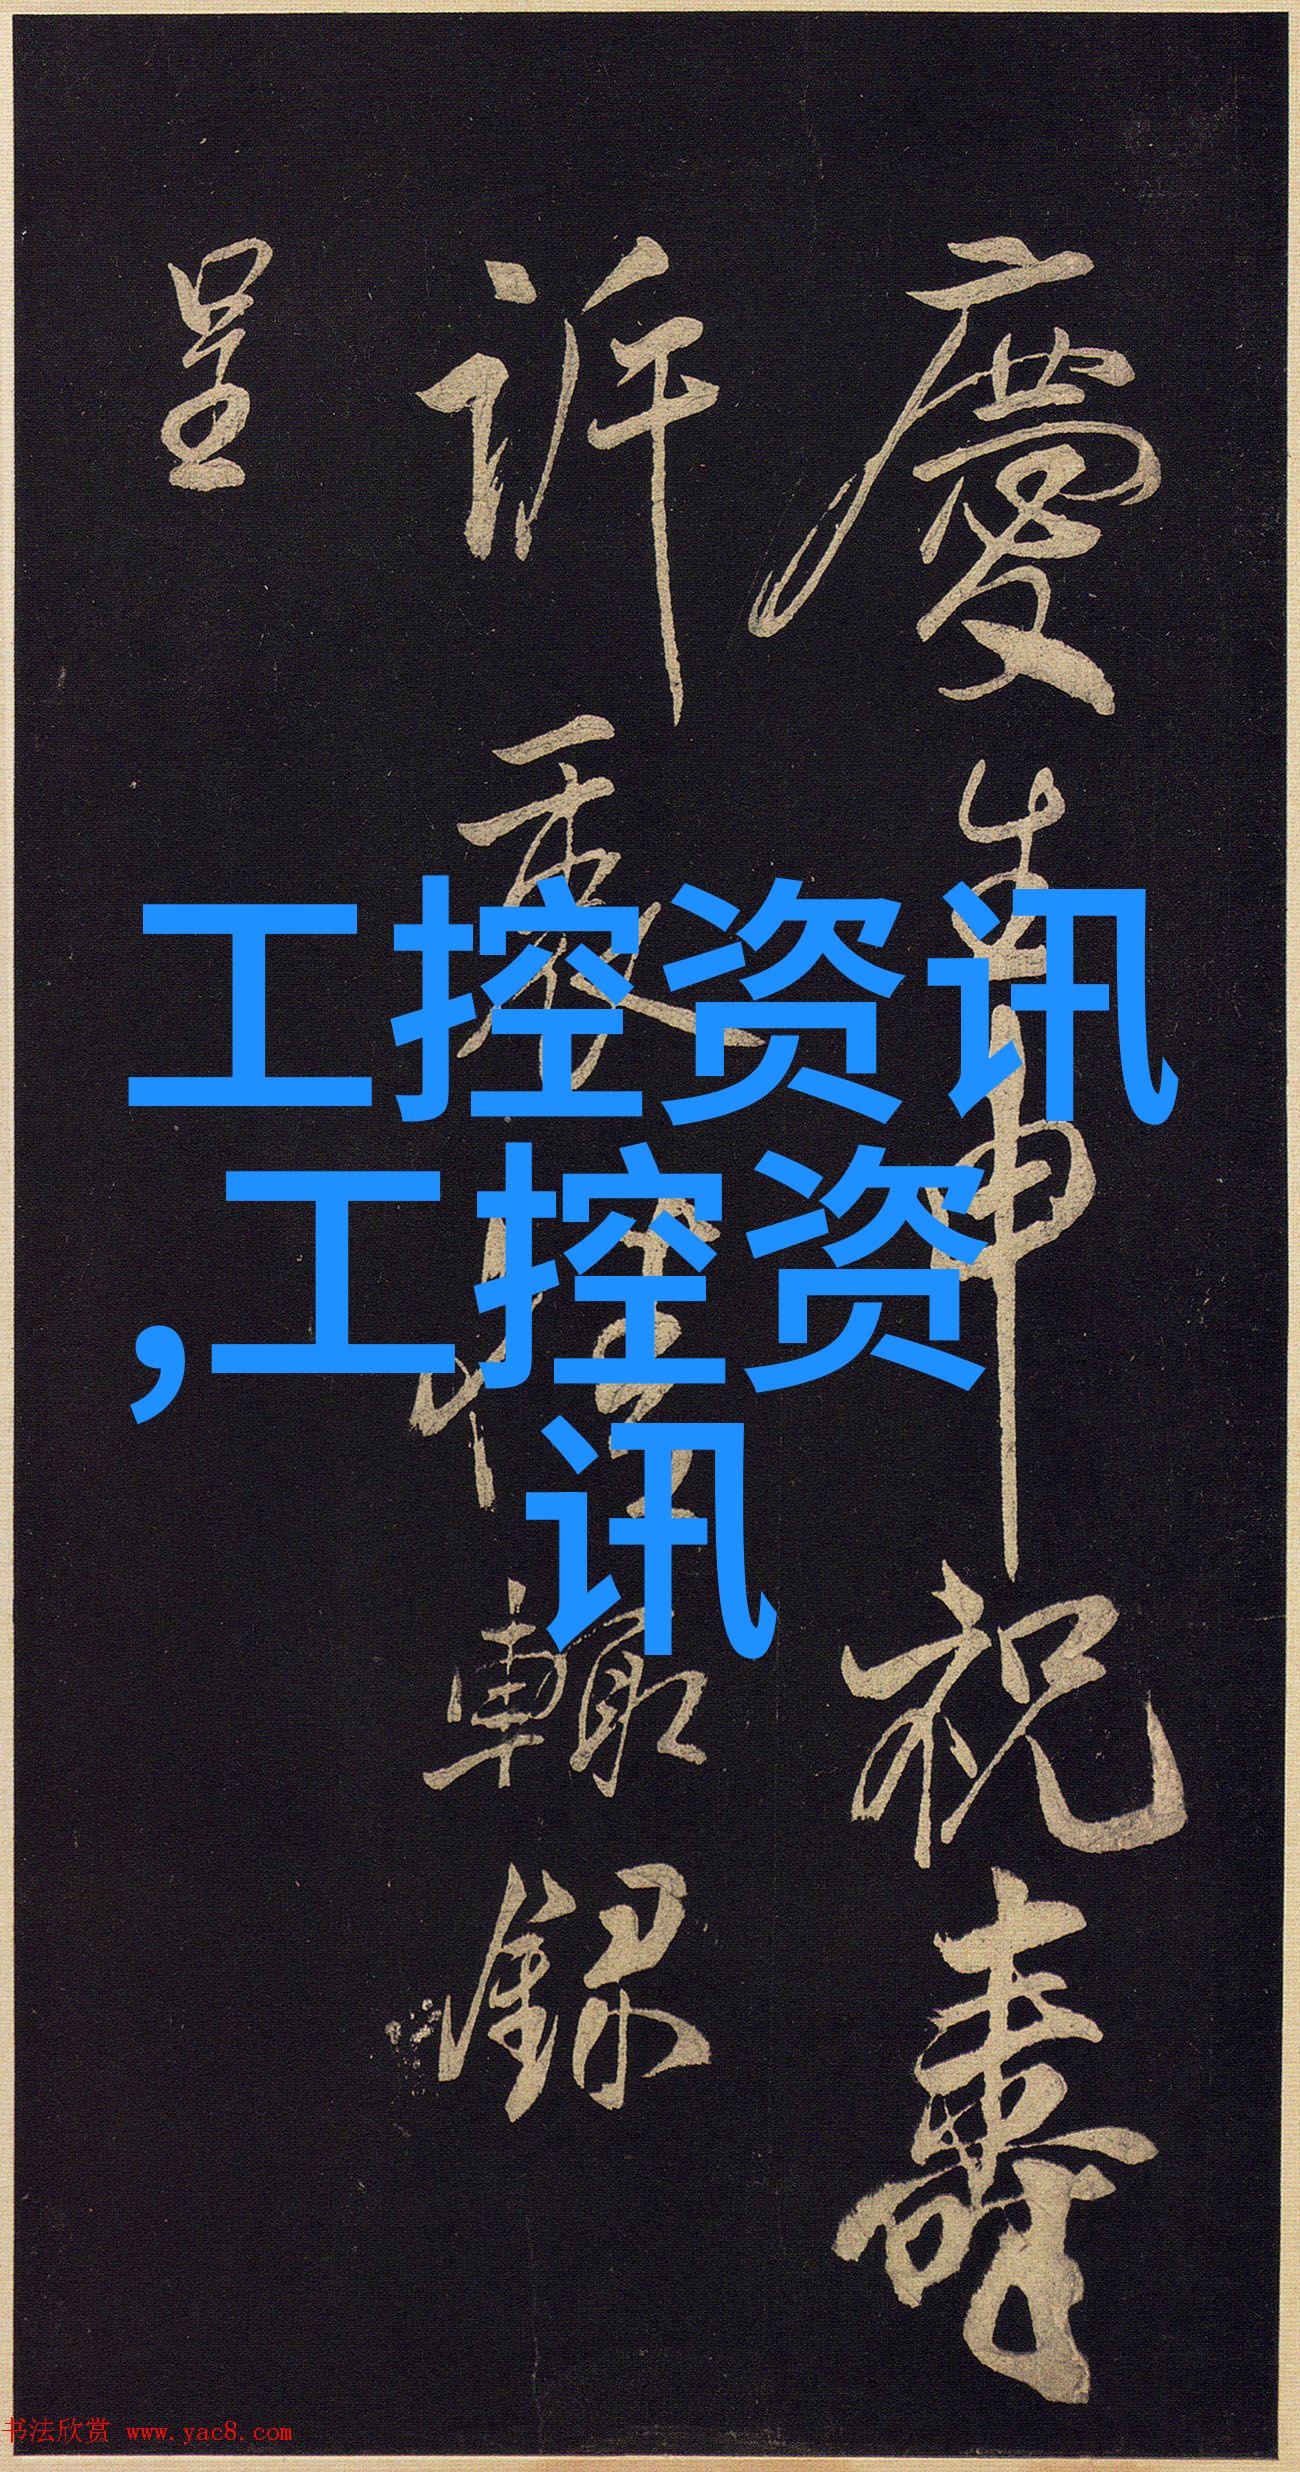 慶生申祝壽
訴
輙錄
呈
工控资讯
,工控资
讯
书法欣赏 www.yac8.com